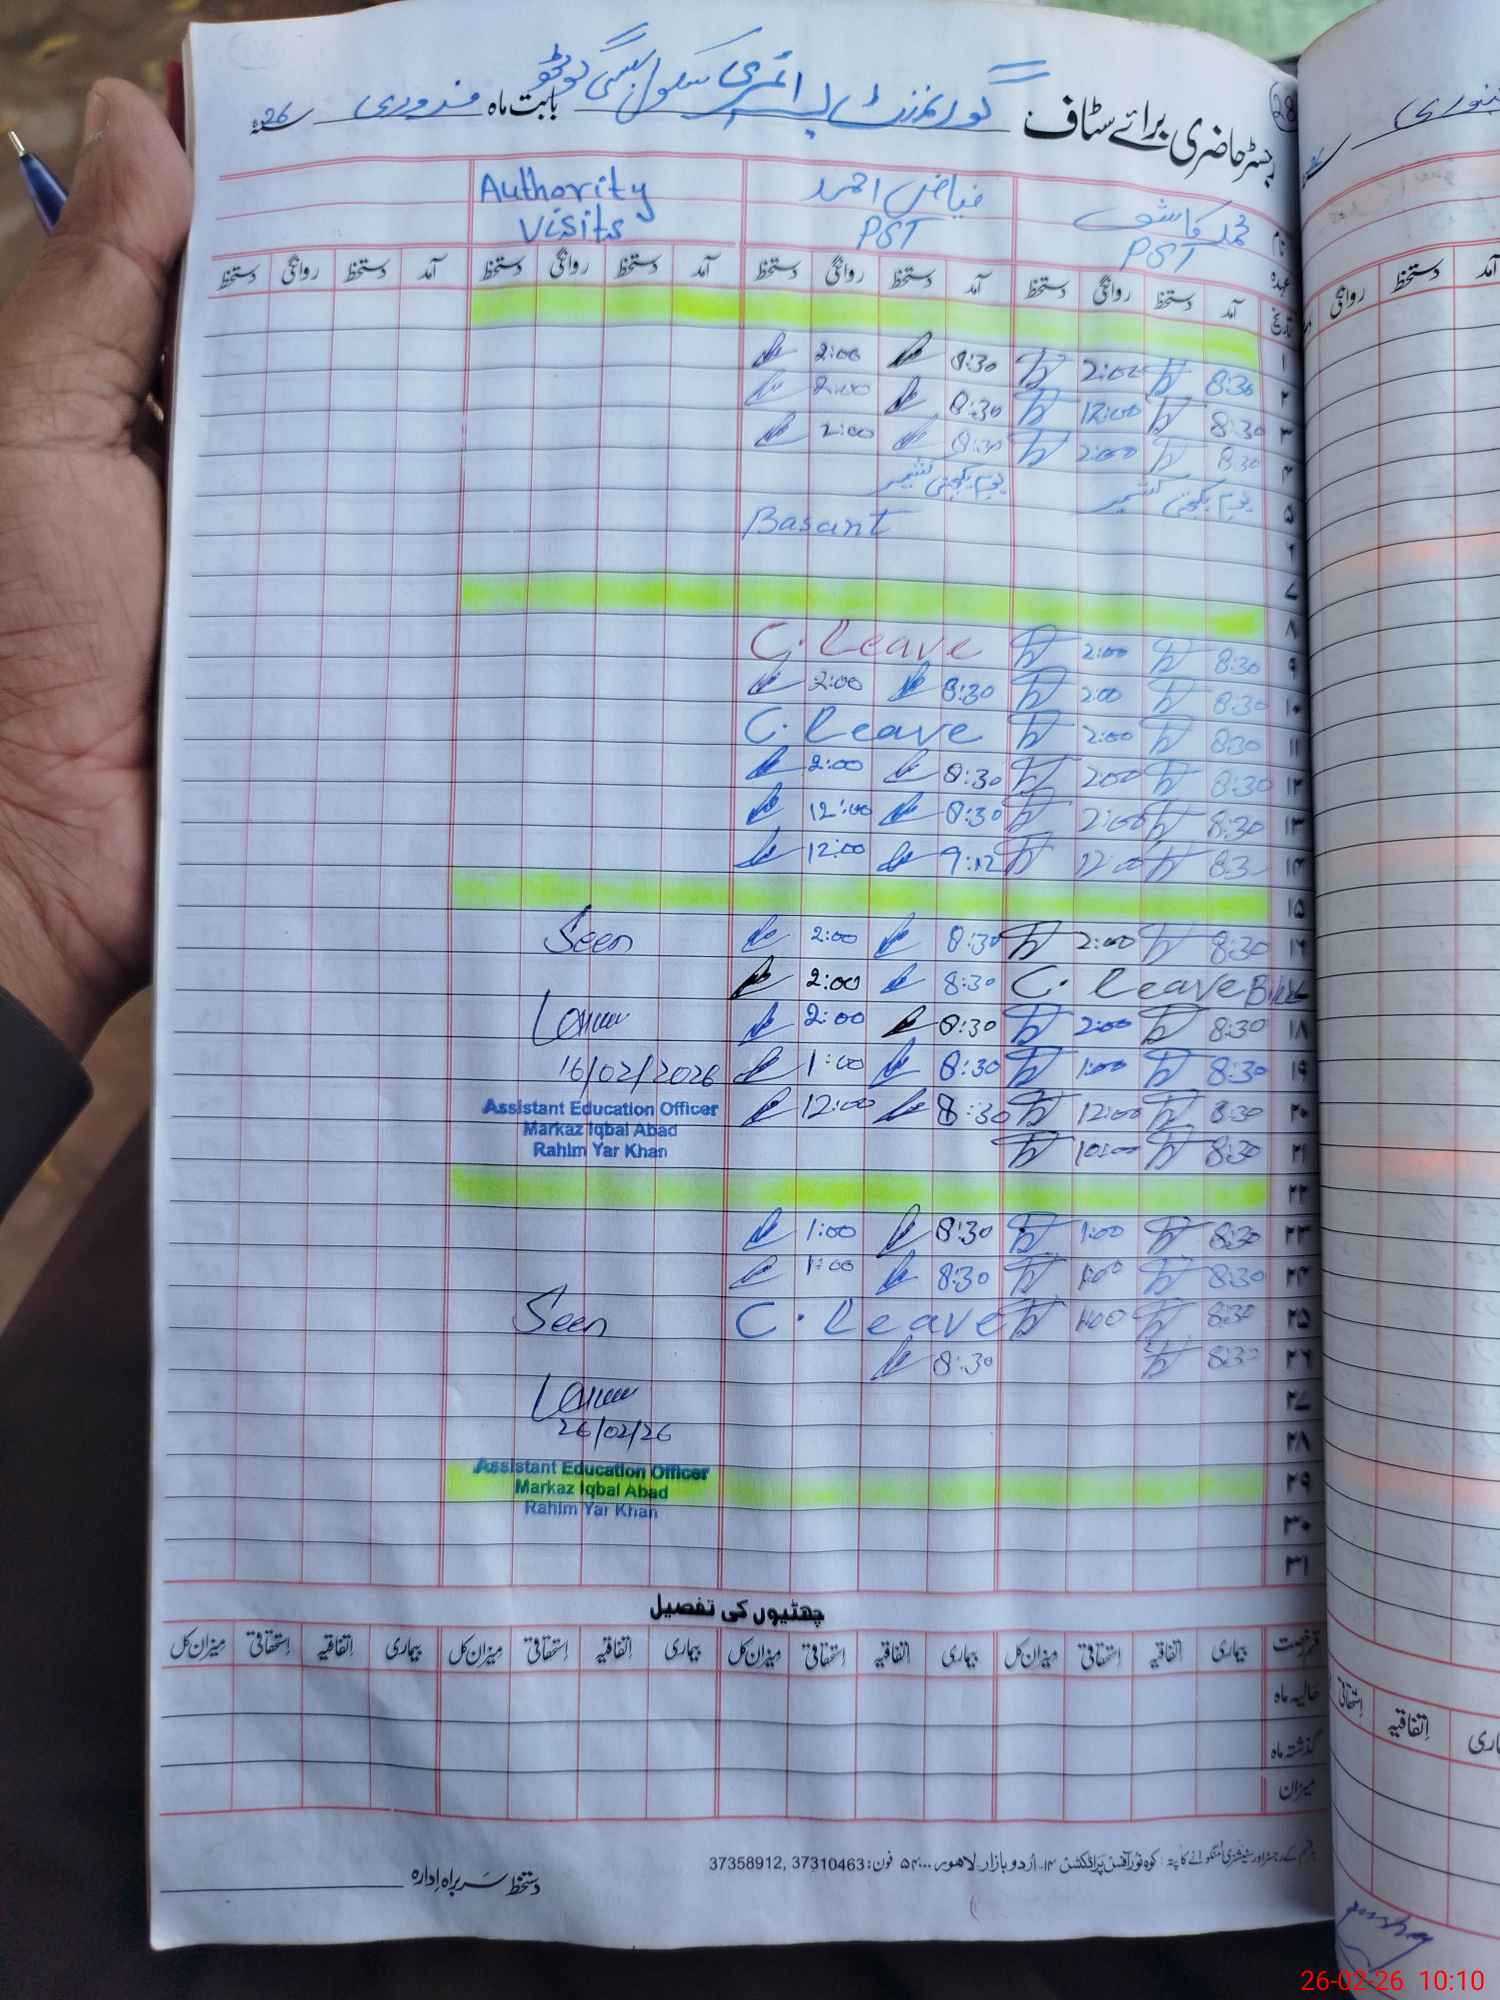 رجسٹر حاضری برائے سٹاف گورنمنٹ پرائمری سکول بستی بابت ماہ فروری 26ء
28
نام محمد کاشف فیاض احمد Authority Visits
عہدہ PST PST
تاریخ آمد دستخط روانگی دستخط آمد دستخط روانگی دستخط آمد دستخط روانگی دستخط آمد دستخط روانگی دستخط
۱
۲ 8:30 2:00 8:30 2:00
۳ 8:30 12:00 8:30 2:00
۴ 8:30 2:00 8:30 2:00
۵ یوم یکجہتی کشمیر یوم یکجہتی کشمیر
۶ Basant
۷
۸
۹ 8:30 2:00 C. Leave
۱۰ 8:30 2:00 8:30 2:00
۱۱ 8:30 2:00 C. Leave
۱۲ 8:30 2:00 8:30 2:00
۱۳ 8:30 2:00 8:30 12:00
۱۴ 8:3 12:00 9:12 12:00
۱۵
۱۶ 8:30 2:00 8:30 2:00 Seen
۱۷ C. Leave 8:30 2:00
۱۸ 8:30 2:00 8:30 2:00
۱۹ 8:30 1:00 8:30 1:00 16/02/2026
۲۰ 8:30 12:00 8:30 12:00 Assistant Education Officer
Markaz Iqbal Abad
۲۱ 8:30 10:00 Rahim Yar Khan
۲۲
۲۳ 8:30 1:00 8:30 1:00
۲۴ 8:30 1:00 8:30 1:00
۲۵ 8:30 1:00 C. Leave Seen
۲۶ 8:30 8:30
۲۷
۲۸ 26/02/26
۲۹ Assistant Education Officer
Markaz Iqbal Abad
۳۰ Rahim Yar Khan
۳۱
چھٹیوں کی تفصیل
قسم رخصت بیماری اتفاقیہ استحقاقی میزان کل بیماری اتفاقیہ استحقاقی میزان کل بیماری اتفاقیہ استحقاقی میزان کل بیماری اتفاقیہ استحقاقی میزان کل
حالیہ ماہ
گذشتہ ماہ
میزان
ہر قسم کے رجسٹر اور سٹیشنری منگوانے کا پتہ: کوہ نور آفس پراڈکشن ۱۴۔ اُردو بازار لاہور فون: 37310463, 37358912
دستخط سربراہ ادارہ
26-02-26 10:10